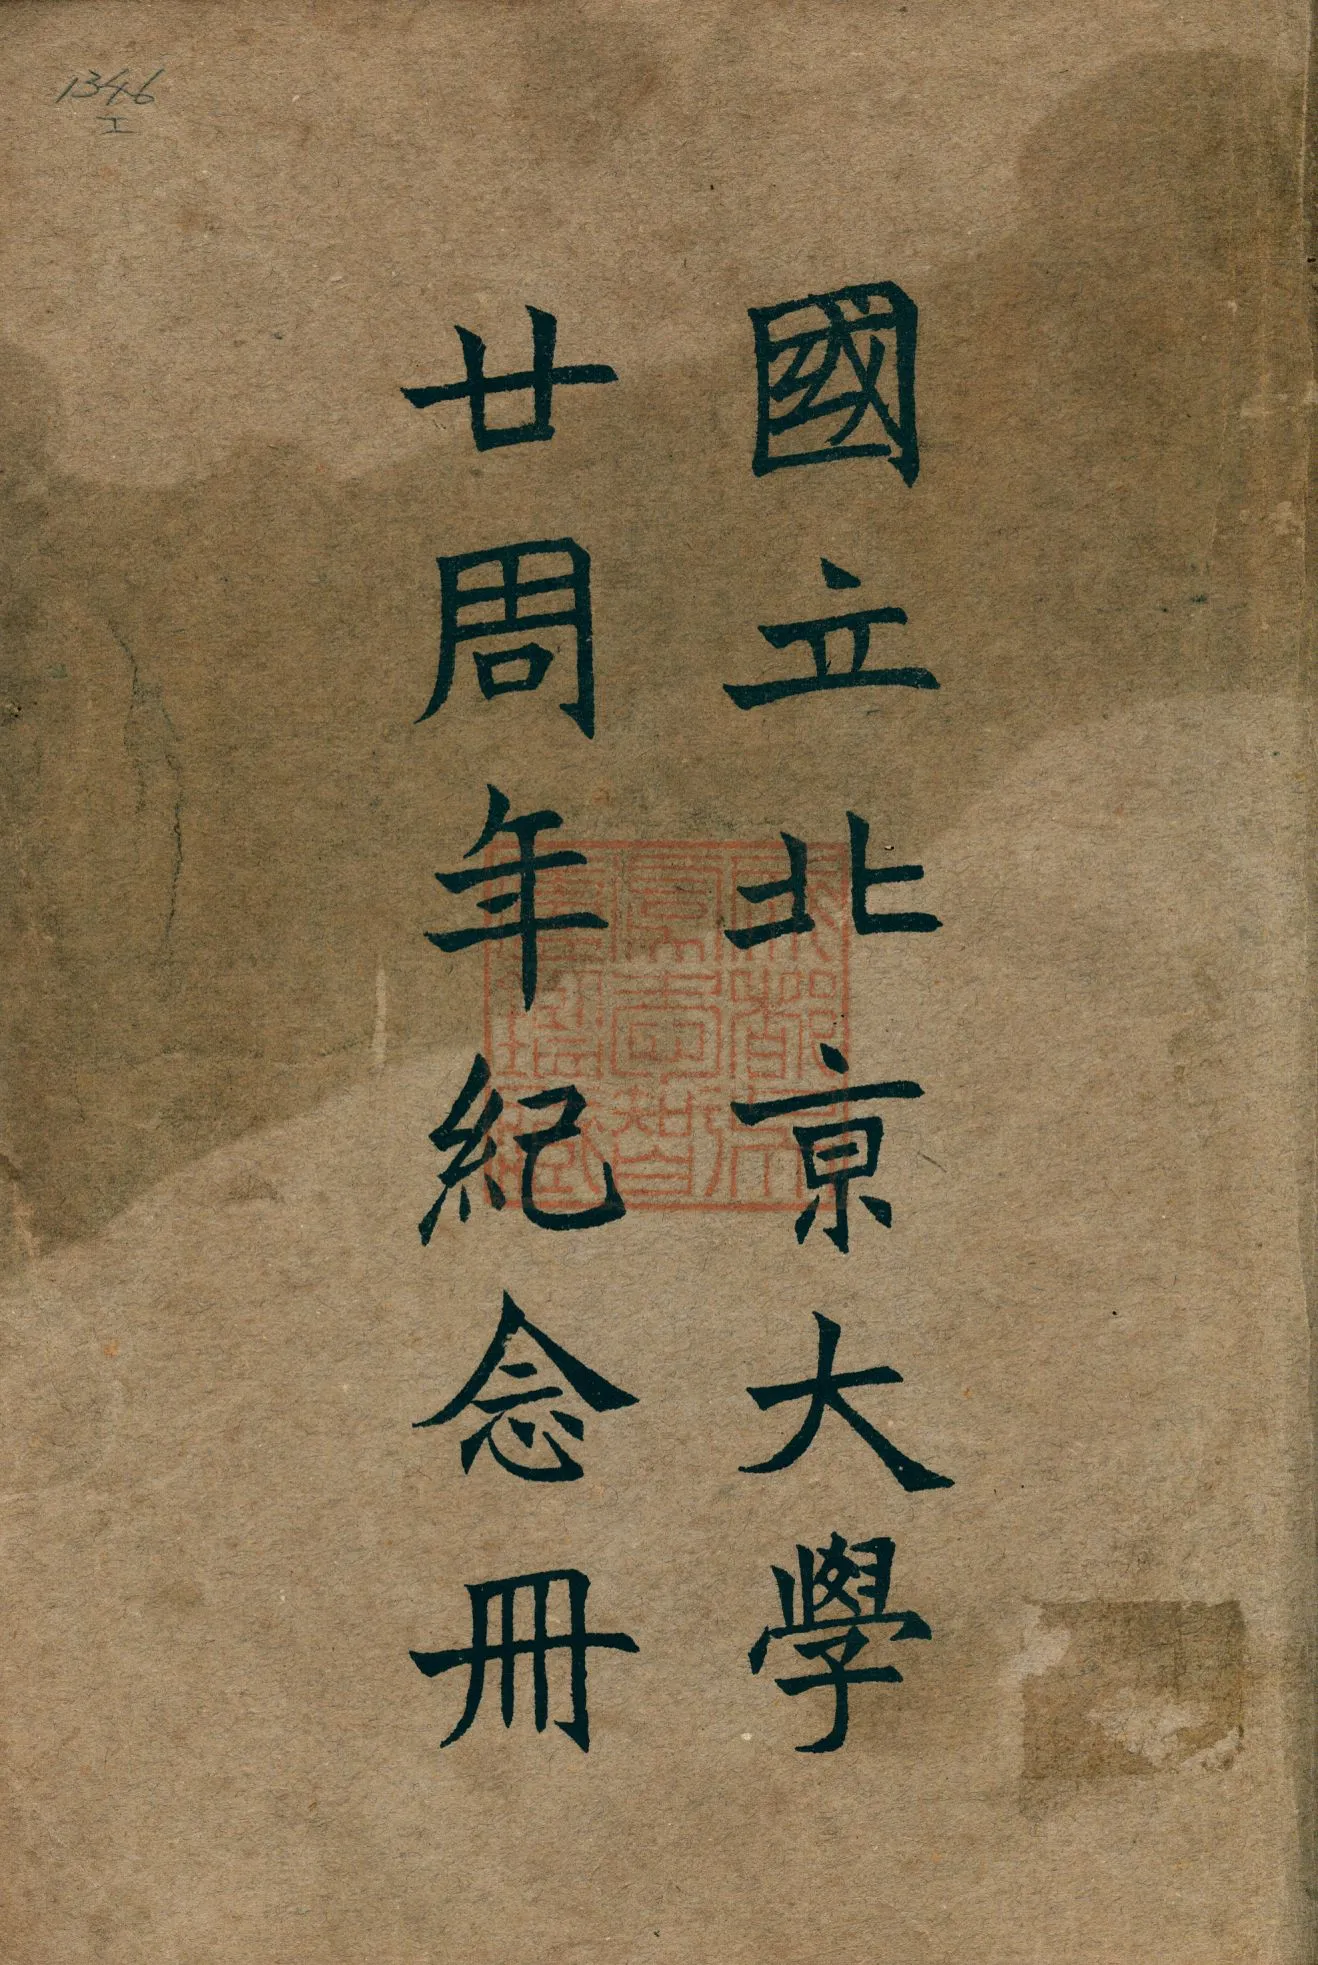 國立北京大學
廿周年紀念冊
1346
工